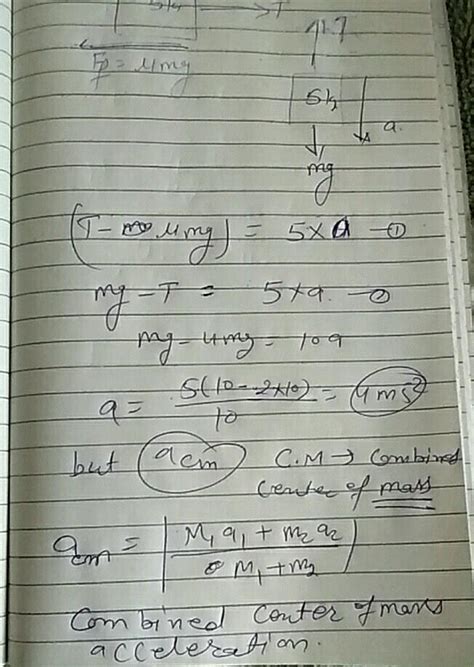 5kg → T
F = μmg
T
5kg
a
mg
(T - μmg) = 5×a —①
mg - T = 5×a —②
mg - μmg = 10a
a = 5(10 - .2×10)/10 = 4ms²
but acm C.M → Combined
Center of mass
acm = |M₁a₁ + m₂a₂ / M₁+m₂|
Combined Center of mass
acceleration.